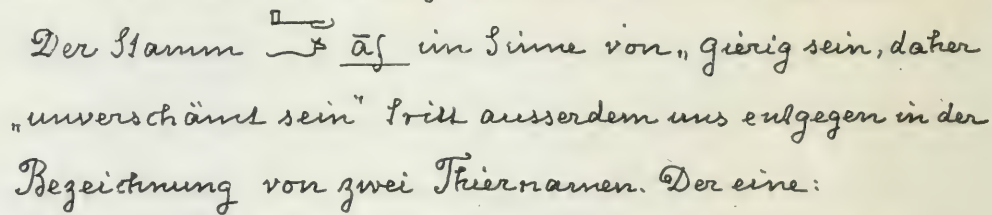 Der Stamm āf im Sinne von „gierig sein, daher
„unverschämt sein" tritt ausserdem uns entgegen in der
Bezeichnung von zwei Thiernamen. Der eine: